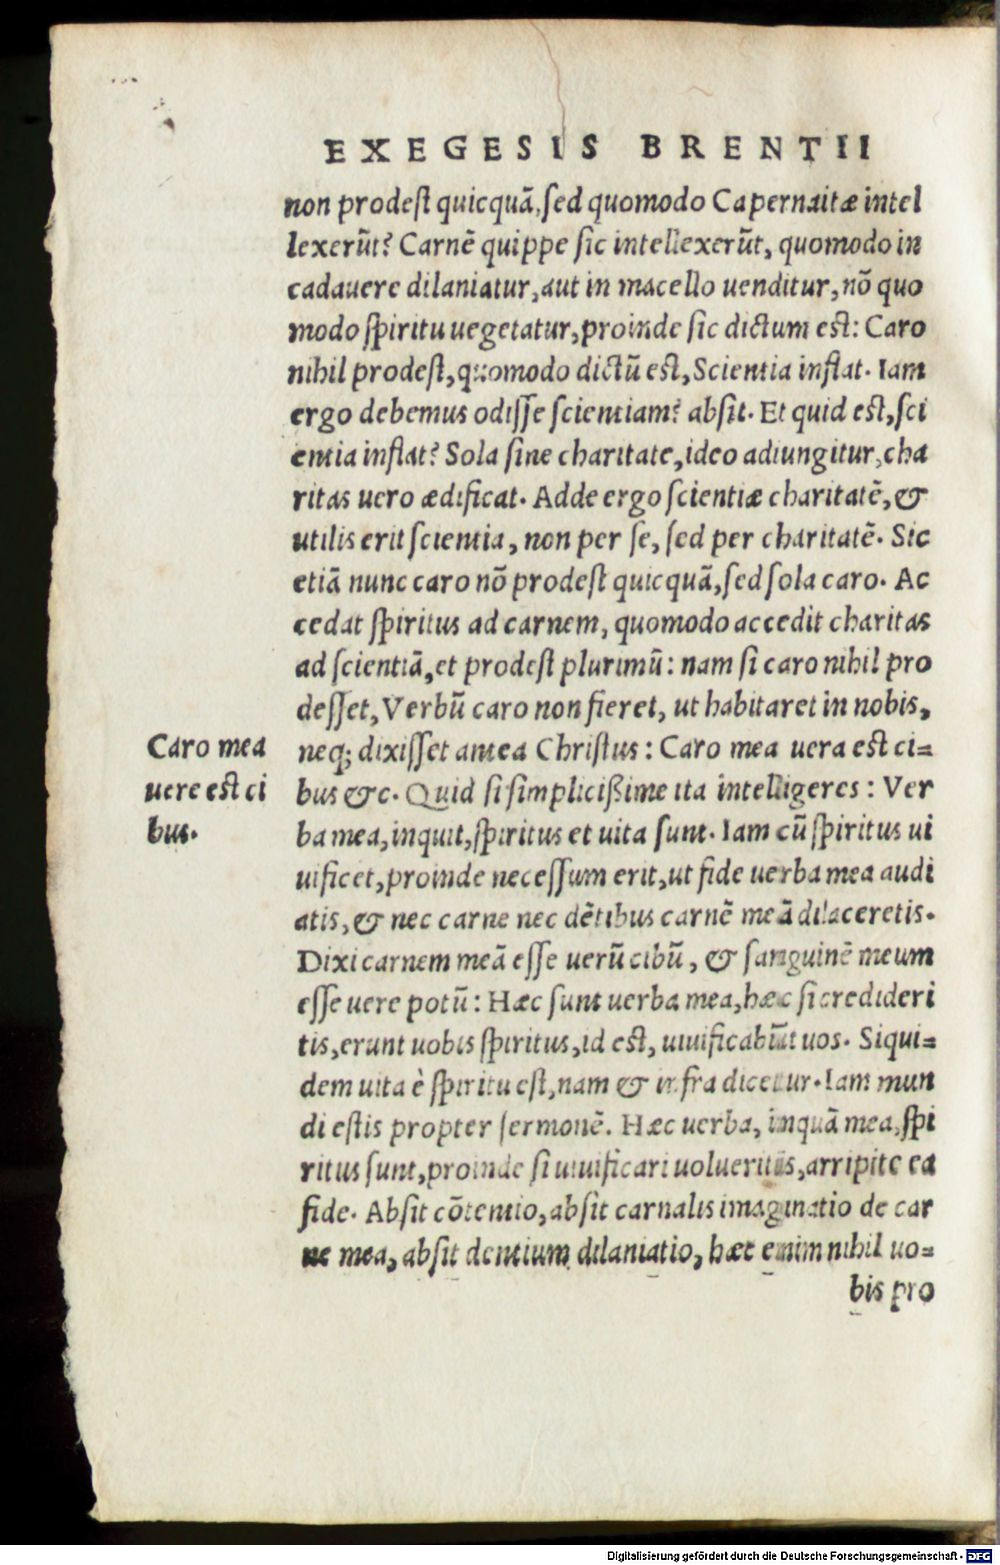 EXEGESIS BRENTII
non prodest quicquã, sed quomodo Capernaitæ intel
lexerũt? Carnẽ quippe sic intellexerũt, quomodo in
cadauere dilaniatur, aut in macello uenditur, nõ quo
modo spiritu uegetatur, proinde sic dictum est: Caro
nihil prodest, quomodo dictũ est, Scientia inflat. Iam
ergo debemus odisse scientiam? absit. Et quid est, sci
entia inflat? Sola sine charitate, ideo adiungitur, cha
ritas uero ædificat. Adde ergo scientiæ charitatẽ, &
utilis erit scientia, non per se, sed per charitatẽ. Sic
etiã nunc caro nõ prodest quicquã, sed sola caro. Ac
cedat spiritus ad carnem, quomodo accedit charitas
ad scientiã, et prodest plurimũ: nam si caro nihil pro
desset, Verbũ caro non fieret, ut habitaret in nobis,
neq; dixisset antea Christus: Caro mea uera est ci=
bus &c. Quid si simplicißime ita intelligeres: Ver
ba mea, inquit, spiritus et uita sunt. Iam cũ spiritus ui
uificet, proinde necessum erit, ut fide uerba mea audi
atis, & nec carne nec dẽtibus carnẽ meã dilaceretis.
Dixi carnem meã esse uerũ cibũ, & sanguinẽ meum
esse uere potũ: Hæc sunt uerba mea, hæc si credideri
tis, erunt uobis spiritus, id est, uiuificabũt uos. Siqui=
dem uita è spiritu est, nam & infra dicetur. Iam mun
di estis propter sermonẽ. Hæc uerba, inquã mea, spi
ritus sunt, proinde si uiuificari uolueritis, arripite ea
fide. Absit cõtentio, absit carnalis imaginatio de car
ne mea, absit dentium dilaniatio, hæc enim nihil uo=
bis pro
Caro mea
uere est ci
bus.
Digitalisierung gefördert durch die Deutsche Forschungsgemeinschaft - DFG